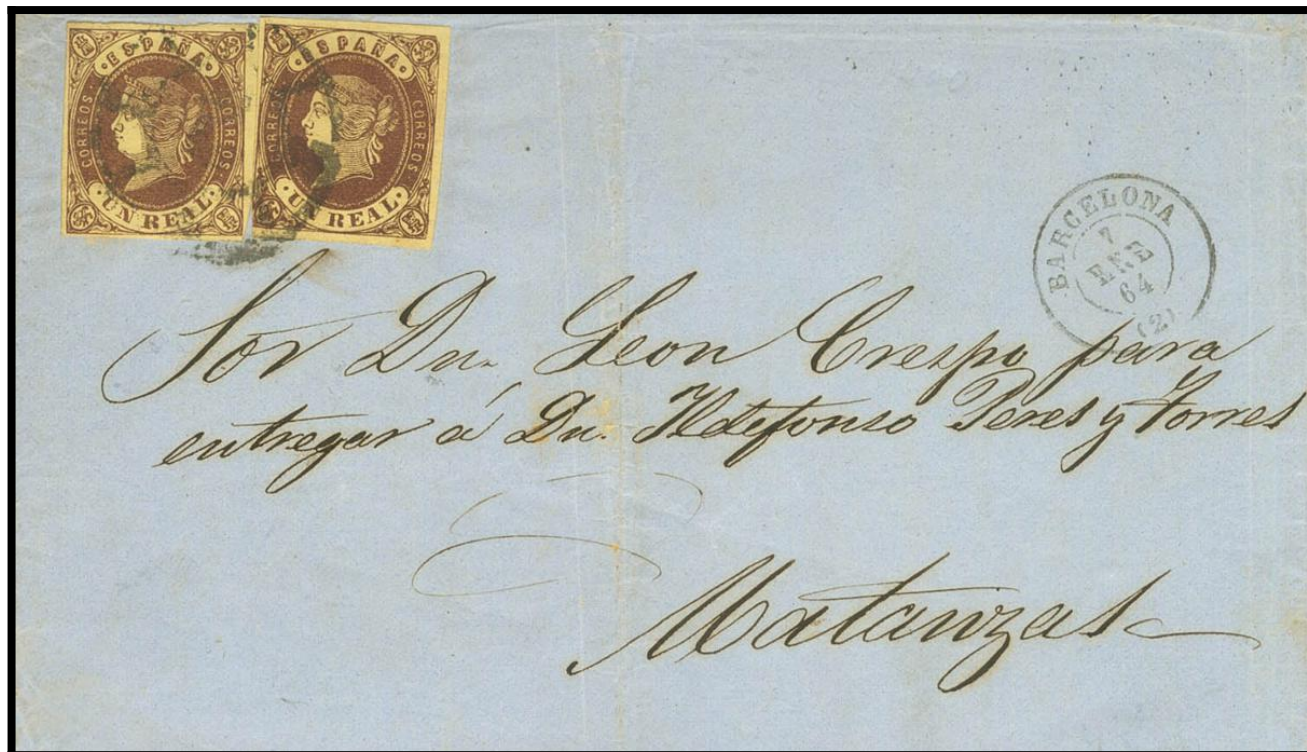 ESPAÑA
CORREOS
CORREOS
UN REAL
ESPAÑA
CORREOS
CORREOS
UN REAL
BARCELONA
7
ENE
64
(2)
Sor Dn. Leon Crespo para
entregar á Dn. Ildefonso Peres y Torres
Matanzas